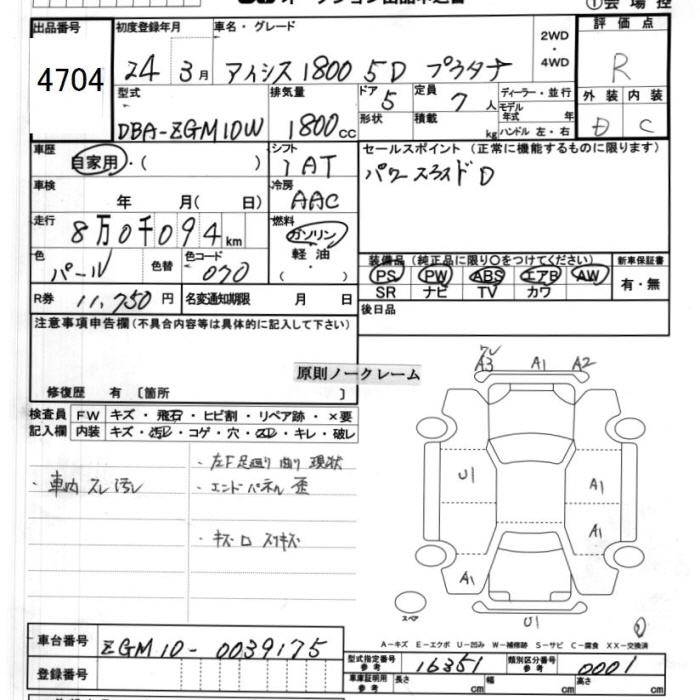 出品番号
4704
初度登録年月
24 3月
車名・グレード
アイシス1800 5D プラタナ
2WD
・
4WD
評価点
R
外装 内装
D C
型式
DBA-ZGM10W
排気量
1800cc
ドア
5
形状
定員
7人
積載
kg
ディーラー・並行
モデル
年式 年
ハンドル 左・右
車歴
自家用・( )
シフト
1AT
車検
年 月( 日)
冷房
AAC
走行
8万0千094km
燃料
ガソリン
軽油
・
色
パール
色替
色コード
070
R券 11,750円
名変通知期限 月 日
セールスポイント(正常に機能するものに限ります)
パワースライドD
装備品(純正品に限り○をつけてください)
PS PW ABS エアB AW
SR ナビ TV カワ
新車保証書
有・無
後日品
注意事項申告欄(不具合内容等は具体的に記入して下さい)
原則ノークレーム
修復歴 有〔箇所 〕
検査員
記入欄
FW キズ・飛石・ヒビ割・リペア跡・×要
内装 キズ・汚レ・コゲ・穴・スレ・キレ・破レ
・車内 スレ汚レ
・左F足廻り曲り 現状
・エンドパネル歪
・キズ ロ スリキズ
A3 A1 A2
U1
A1
A1
A1
U1
スペア
A-キズ E-エクボ U-凹み W-補修跡 S-サビ C-腐食 XX-交換済
車台番号 ZGM10-0039175
登録番号
型式指定番号
参考
16351
類別区分番号
参考
0001
車庫証明用
参考
長さ cm 幅 cm 高さ cm